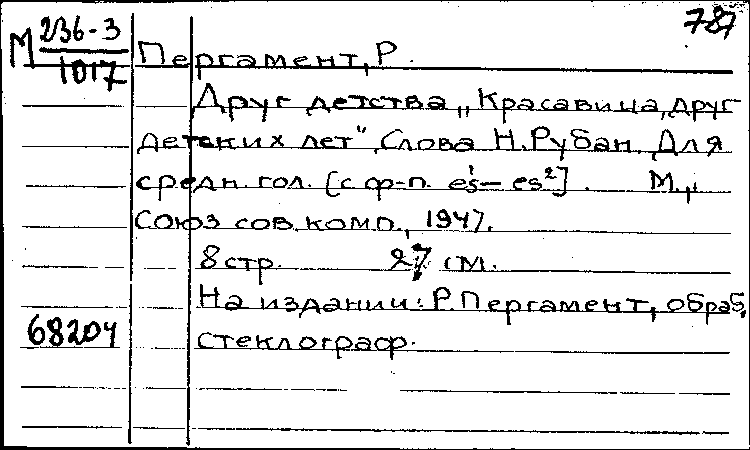 787
М 236-3
1017
Пергамент, Р.
Друг детства „Красавица, друг
детских лет". Слова Н. Рубан. Для
средн. гол. [с ф-п. es¹ – es²]. М.,
Союз сов. комп., 1947.
8 стр. 27 см.
На издании: Р. Пергамент, обраб.
68204
стеклограф.